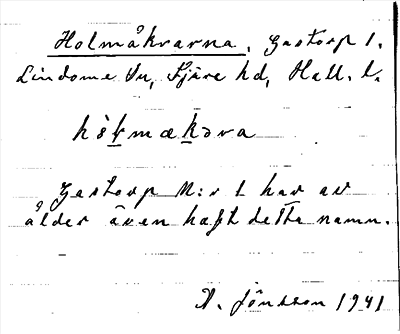 Holmåkrarna, Gastorp 1.
Lindome sn, Fjäre hd, Hall. l.
hò̀ɫmækəra
Gastorp N:r 1 har av
ålder även haft detta namn.
A. Jönsson 1941